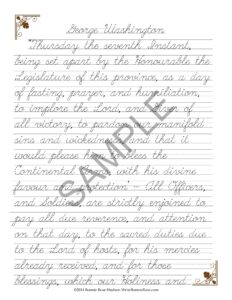 George Washington
Thursday the seventh Instant,
being set apart by the Honourable the
Legislature of this province, as a day
of fasting, prayer, and humiliation,
to implore the Lord, and Giver of
all victory, to pardon our manifold
sins and wickedness, and that it
would please him to bless the
Continental Arms, with his divine
favour and protection" — All Officers,
and Soldiers, are strictly enjoined to
pay all due reverence, and attention
on that day, to the sacred duties due
to the Lord of hosts, for his mercies
already received, and for those
blessings, which our Holiness and
SAMPLE
©2014 Bonnie Rose Hudson WriteBonnieRose.com